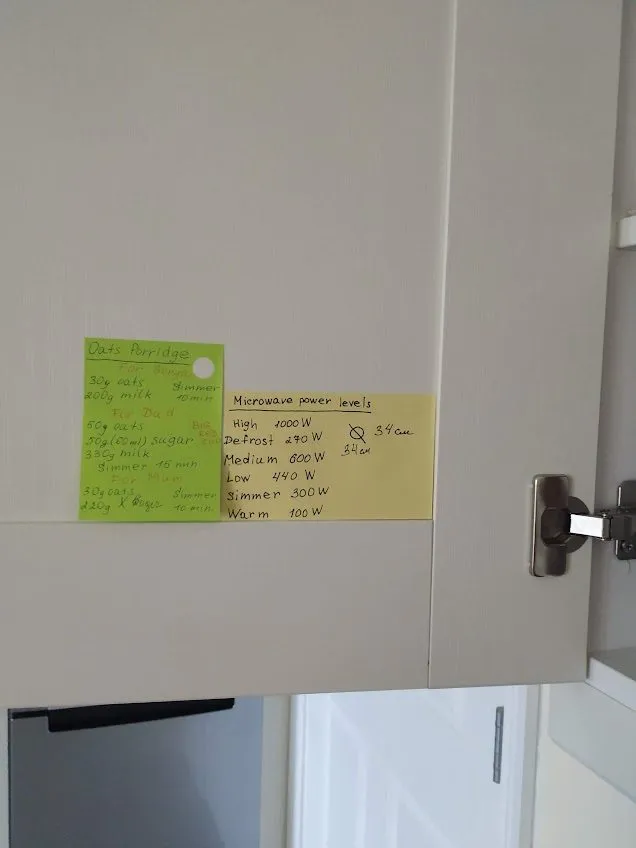 Oats Porridge
For
30g oats Simmer
200g milk 10 min
For Dad
50g oats BIG
50g (60ml) sugar RED
330g milk
Simmer 15 min
For Mum
30g oats Simmer
220g 10 min
Microwave power levels
High 1000 W
Defrost 270 W
Medium 600 W
Low 440 W
Simmer 300 W
Warm 100 W
34 см
34 см